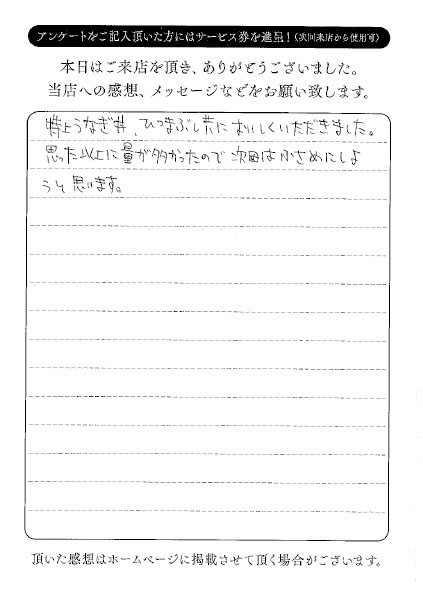 アンケートをご記入頂いた方にはサービス券を進呈!(次回来店から使用可)
本日はご来店を頂き、ありがとうございました。
当店への感想、メッセージなどをお願い致します。
特上うなぎ丼、ひつまぶし共においしくいただきました。
思った以上に量が多かったので次回は小さめにしよ
うと思います。
頂いた感想はホームページに掲載させて頂く場合がございます。